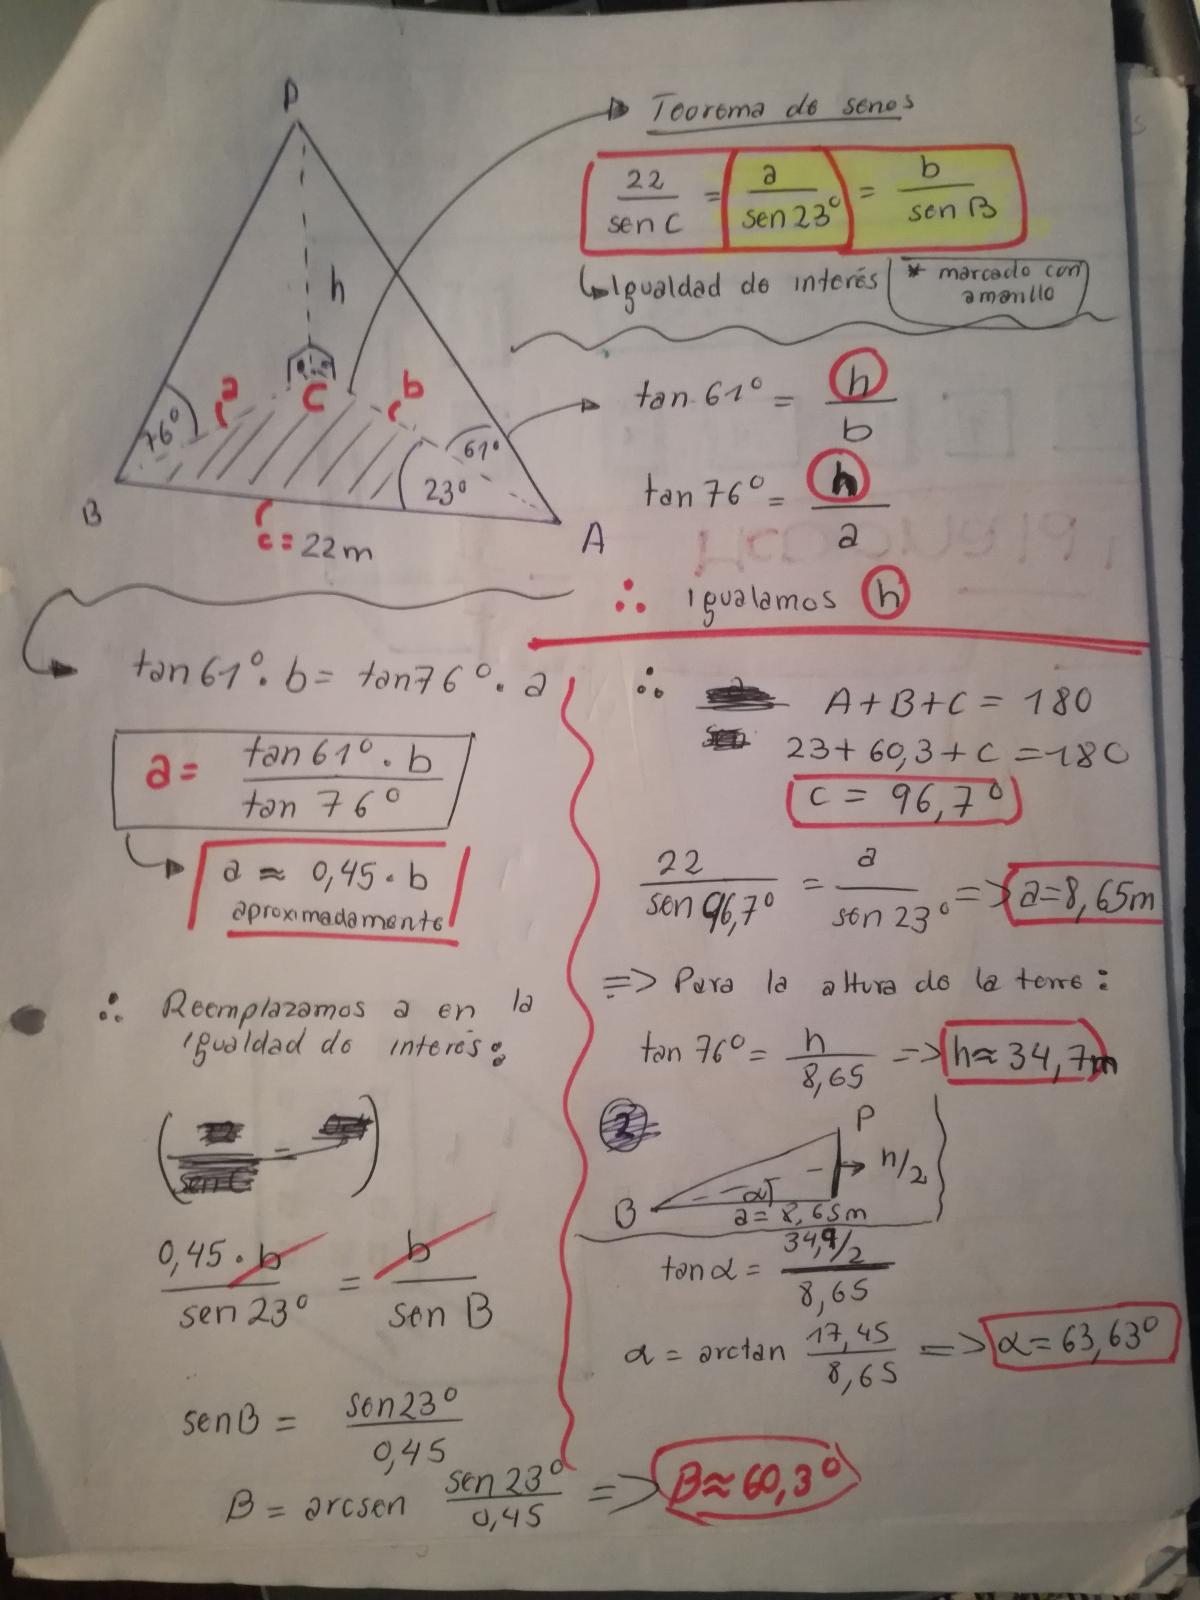 P
h
a
C
b
76°
61°
23°
B
A
c = 22 m
Teorema de senos
22/sen C = a/sen 23° = b/sen B
Igualdad de interés
* marcado con
amarillo
tan 61° = h/b
tan 76° = h/a
∴ Igualamos h
tan 61° · b = tan 76° · a
a = tan 61° · b / tan 76°
a ≈ 0,45 · b
aproximadamente
∴ Reemplazamos a en la
igualdad de interés:
0,45 · b / sen 23° = b / sen B
sen B = sen 23° / 0,45
B = arcsen sen 23° / 0,45 => B ≈ 60,3°
∴ A + B + C = 180
23 + 60,3 + C = 180
C = 96,7°
22 / sen 96,7° = a / sen 23° => a = 8,65m
=> Para la altura de la torre:
tan 76° = h / 8,65 => h ≈ 34,7m
2
P
h/2
B
α
a = 8,65m
tan α = 34,9/2 / 8,65
α = arctan 17,45 / 8,65 => α = 63,63°